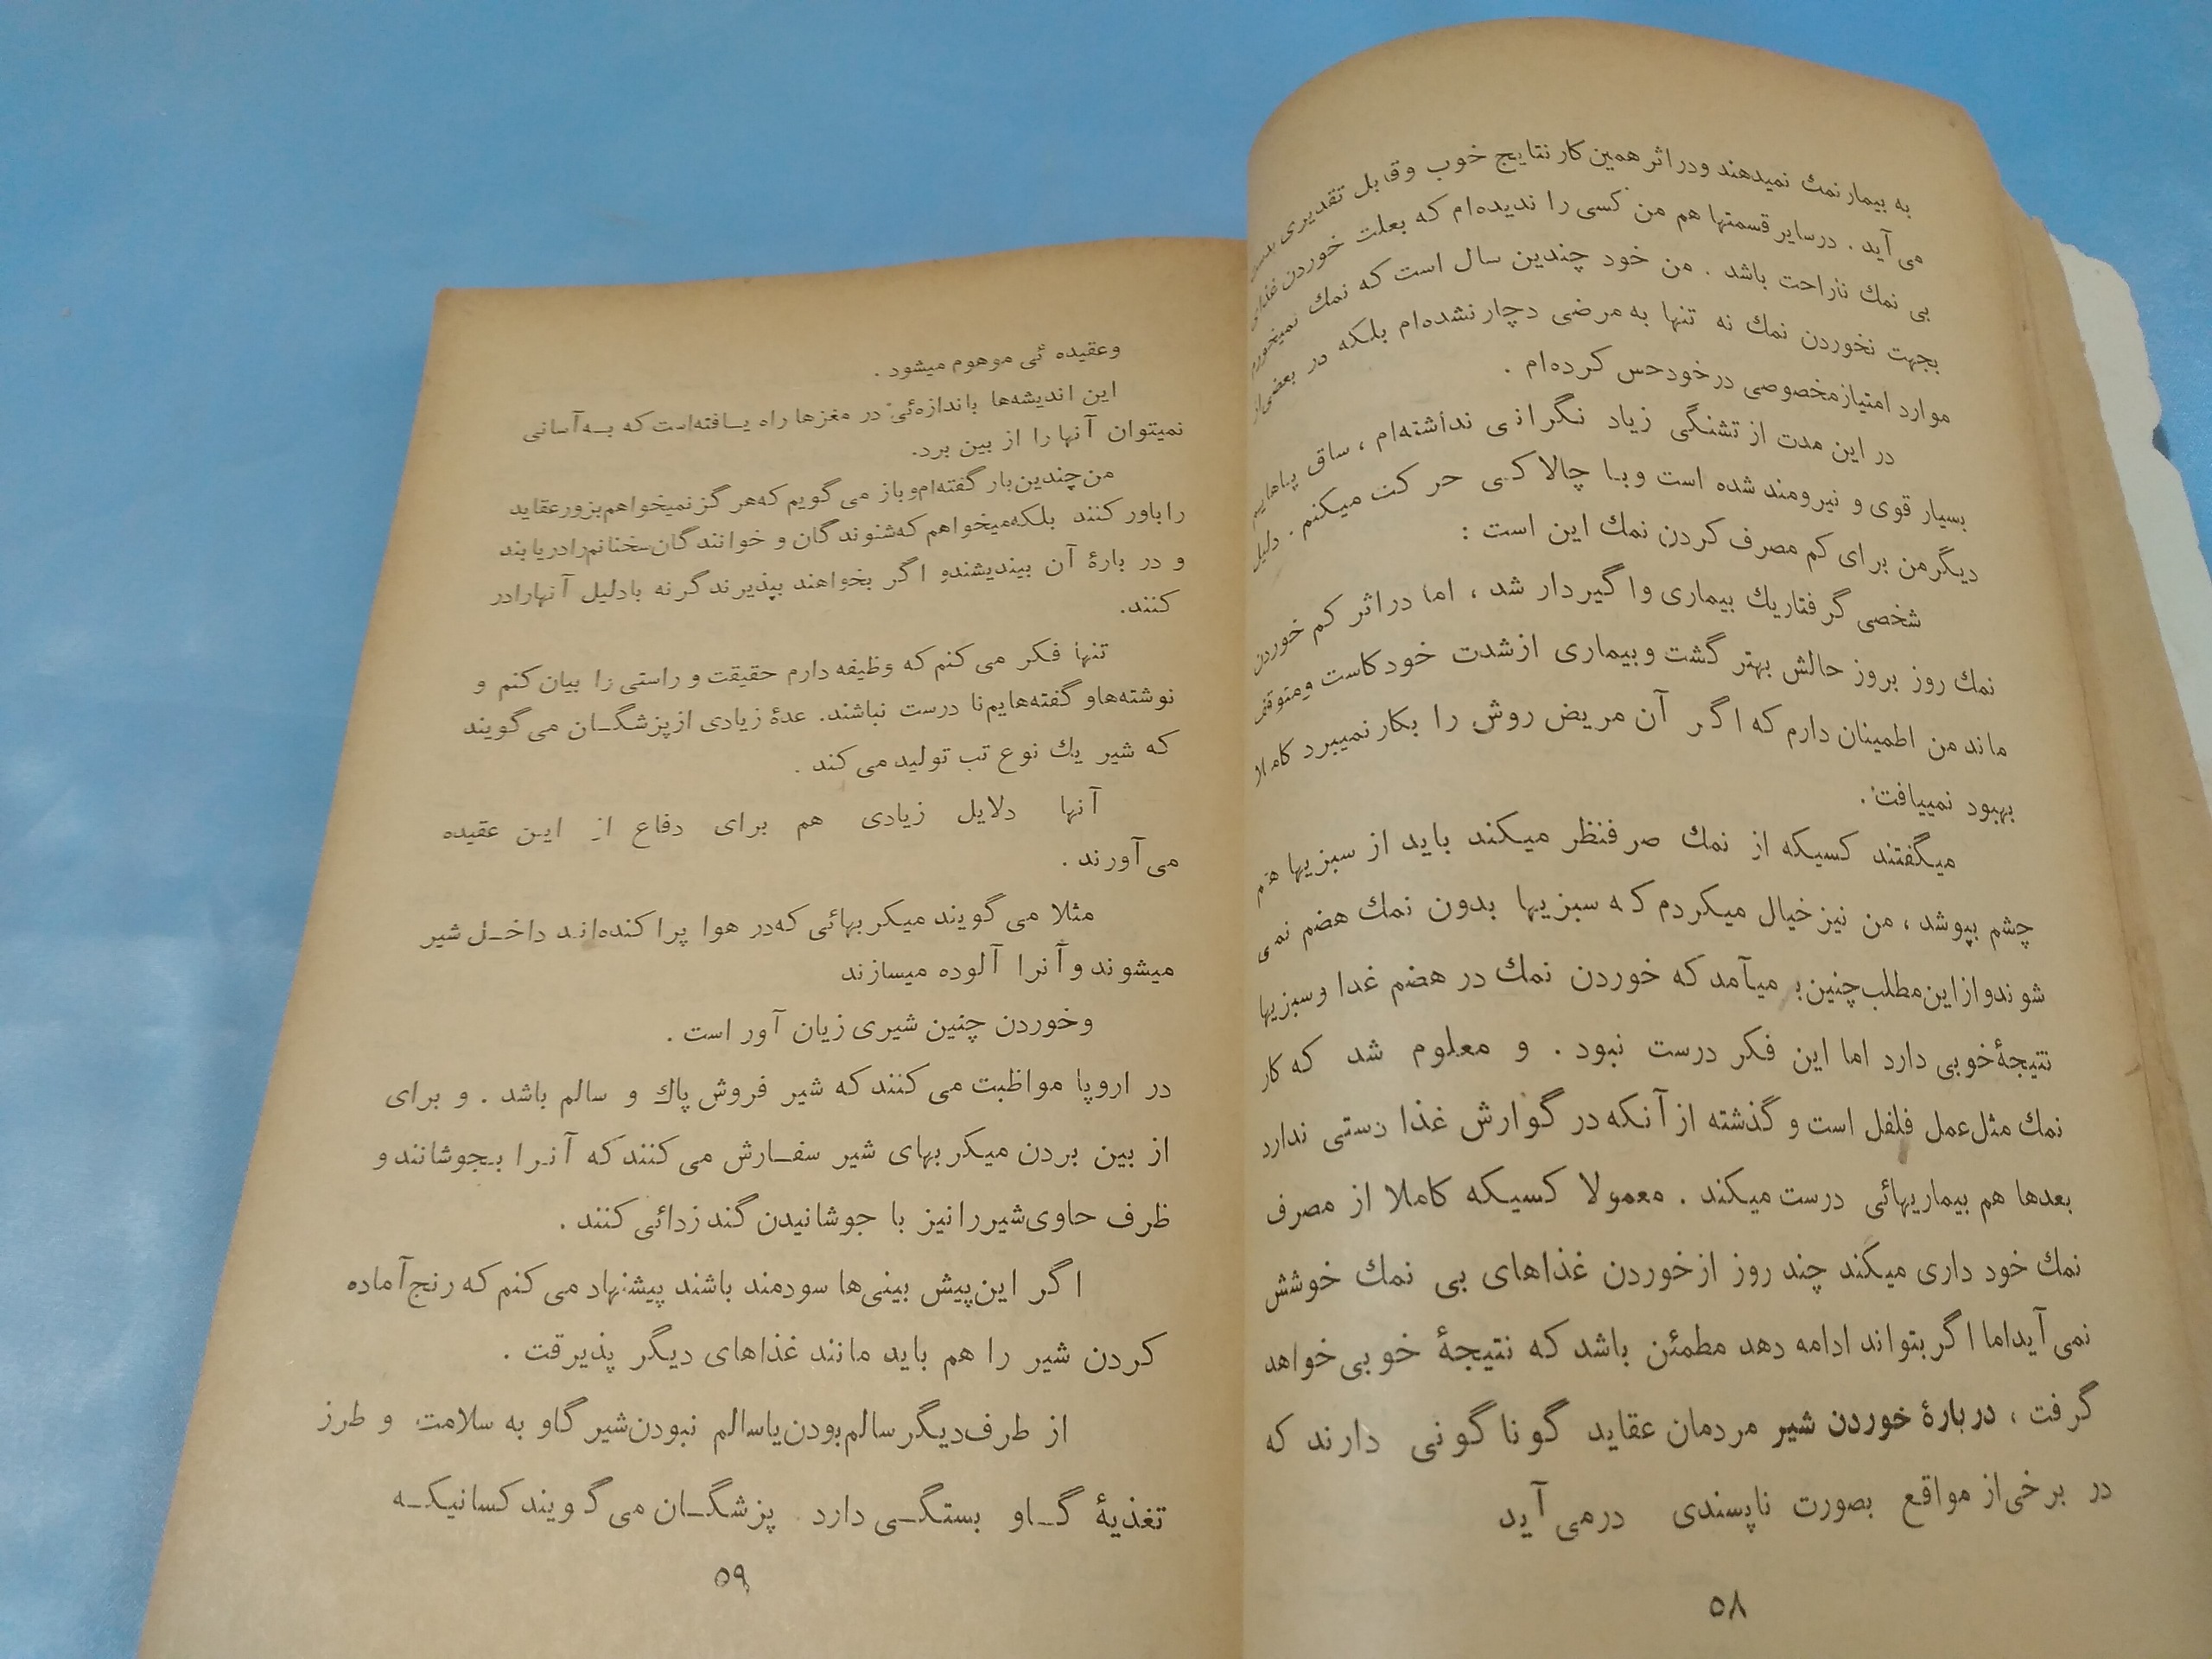 به بیمار نمك نمیدهند ودراثر همین کار نتایج خوب وقابل تقدیری بدست
می آید . درسایر قسمتها هم من کسی را ندیده‌ام که بعلت خوردن غذای
بی نمك ناراحت باشد . من خود چندین سال است که نمك نمیخورم
بجهت نخوردن نمك نه تنها به مرضی دچار نشده‌ام بلکه در بعضی‌از
موارد امتیازمخصوصی درخودحس کرده‌ام .
در این مدت از تشنگی زیاد نگرانی نداشته‌ام ، ساق پاهایم
بسیار قوی و نیرومند شده است وبا چالاکی حرکت میکنم . دلیل
دیگرمن برای کم مصرف کردن نمك این است :
شخصی گرفتاریك بیماری واگیردار شد ، اما دراثر کم خوردن
نمك روز بروز حالش بهتر گشت وبیماری ازشدت خودکاست ومتوقف
ماند من اطمینان دارم که اگر آن مریض روش را بکار نمیبرد کاملا
بهبود نمییافت .
میگفتند کسیکه از نمك صرفنظر میکند باید از سبزیها هم
چشم بپوشد ، من نیزخیال میکردم که سبزیها بدون نمك هضم نمی
شوندوازاین‌مطلب‌چنین‌بر میآمدکه خوردن نمك در هضم غدا وسبزیها
نتیجهٔ‌خوبی دارد اما این فکر درست نبود . و معلوم شد که کار
نمك مثل‌عمل فلفل است و گذشته از آنکه در گوارش غذا دستی ندارد
بعدها هم بیماریهائی درست میکند . معمولا کسیکه کاملا از مصرف
نمك خود داری میکند چند روز ازخوردن غذاهای بی نمك خوشش
نمی‌آیداما اگربتواند ادامه دهد مطمئن باشد که نتیجهٔ خوبی‌خواهد
گرفت ، دربارهٔ خوردن شیر مردمان عقاید گوناگونی دارند که
در برخی‌از مواقع بصورت ناپسندی درمی‌آید
۵۸
وعقیده ئی موهوم میشود .
این اندیشه‌ها باندازه‌ئی در مغزها راه یافته‌است که به‌آسانی
نمیتوان آنها را از بین برد.
من‌چندین‌بار گفته‌ام‌وباز می‌گویم که‌هرگزنمیخواهم‌بزورعقاید
راباور کنند بلکه‌میخواهم که‌شنوندگان و خوانندگان‌سخنانم‌رادریابند
و در بارهٔ آن بیندیشندو اگر بخواهند بپذیرندگرنه بادلیل آنهارارد
کنند.
تنها فکر می کنم که وظیفه دارم حقیقت و راستی را بیان کنم و
نوشته‌هاو گفته‌هایم‌نا درست نباشند. عدهٔ زیادی ازپزشگان می‌گویند
که شیر یك نوع تب تولید می کند .
آنها دلایل زیادی هم برای دفاع از این عقیده
می‌آورند .
مثلا می گویند میکربهائی که‌در هوا پراکنده‌اند داخل شیر
میشوند و آنرا آلوده میسازند
وخوردن چنین شیری زیان آور است .
در اروپا مواظبت می کنند که شیر فروش پاك و سالم باشد . و برای
از بین بردن میکربهای شیر سفارش می کنند که آنرا بجوشانند و
ظرف حاوی‌شیررانیز با جوشانیدن گندزدائی کنند .
اگر این‌پیش بینی‌ها سودمند باشند پیشنهاد می کنم که رنج‌آماده
کردن شیر را هم باید مانند غذاهای دیگر پذیرقت .
از طرف‌دیگر سالم‌بودن‌یاسالم نبودن‌شیر گاو به سلامت و طرز
تغذیهٔ گاو بستگی دارد پزشگان می‌گویند کسانیکه
۵۹